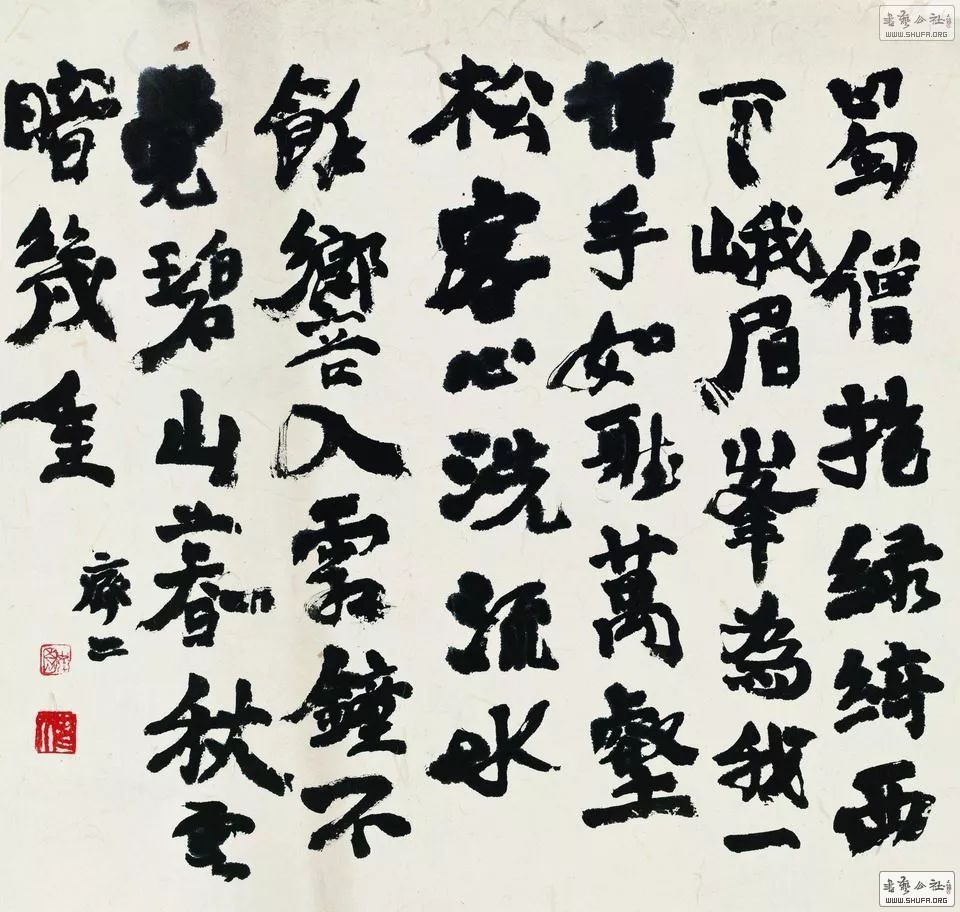 蜀僧抱綠綺西
下峨眉峯為我一
揮手如聽萬壑
松客心洗流水
餘響入霜鐘不
覺碧山暮秋雲
暗幾重
书艺公社
WWW.SHUFA.ORG
书艺公社
WWW.SHUFA.ORG